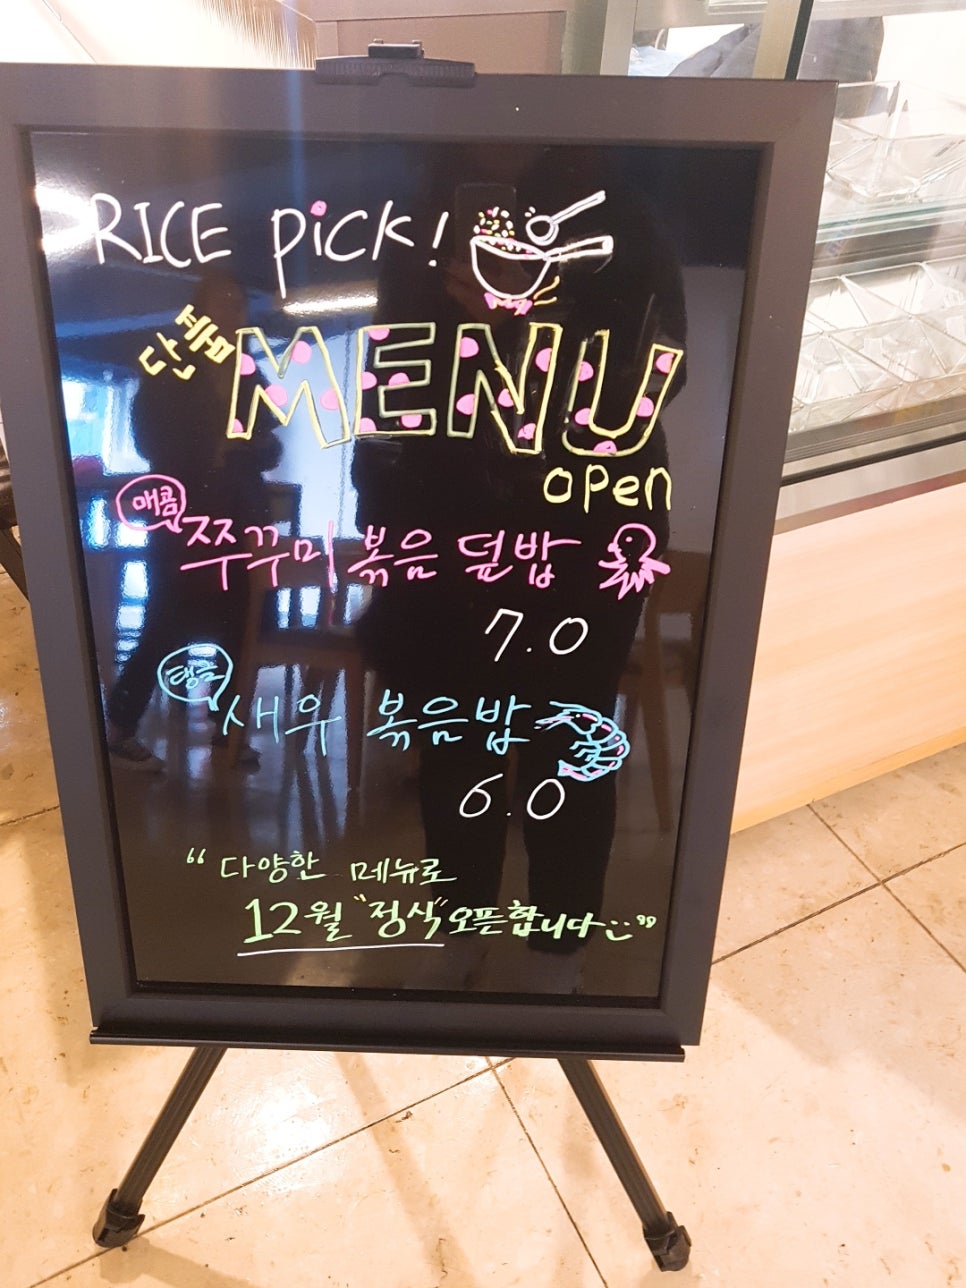 RICE PICK!
단품
MENU
open
매콤
쭈꾸미 볶음 덮밥
7.0
탱글
새우 볶음밥
6.0
“ 다양한 메뉴로
12월 "정식" 오픈합니다 :) ”